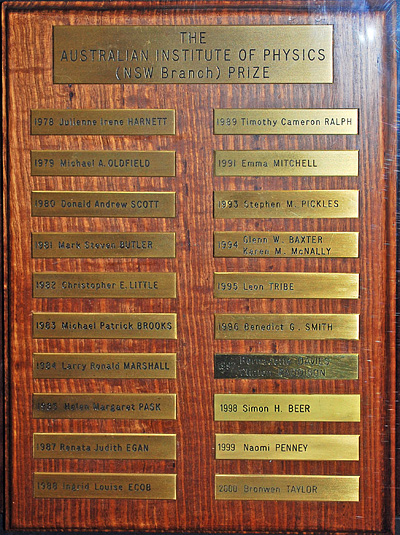 THE
AUSTRALIAN INSTITUTE OF PHYSICS
(NSW Branch) PRIZE
1978 Julienne Irene HARNETT
1979 Michael A. OLDFIELD
1980 Donald Andrew SCOTT
1981 Mark Steven BUTLER
1982 Christopher E. LITTLE
1983 Michael Patrick BROOKS
1984 Larry Ronald MARSHALL
1985 Helen Margaret PASK
1987 Renata Judith EGAN
1988 Ingrid Louise ECOB
1989 Timothy Cameron RALPH
1991 Emma MITCHELL
1993 Stephen M. PICKLES
1994 Glenn W. BAXTER
Karen M. McNALLY
1995 Leon TRIBE
1996 Benedict G. SMITH
1998 Simon H. BEER
1999 Naomi PENNEY
2000 Bronwen TAYLOR